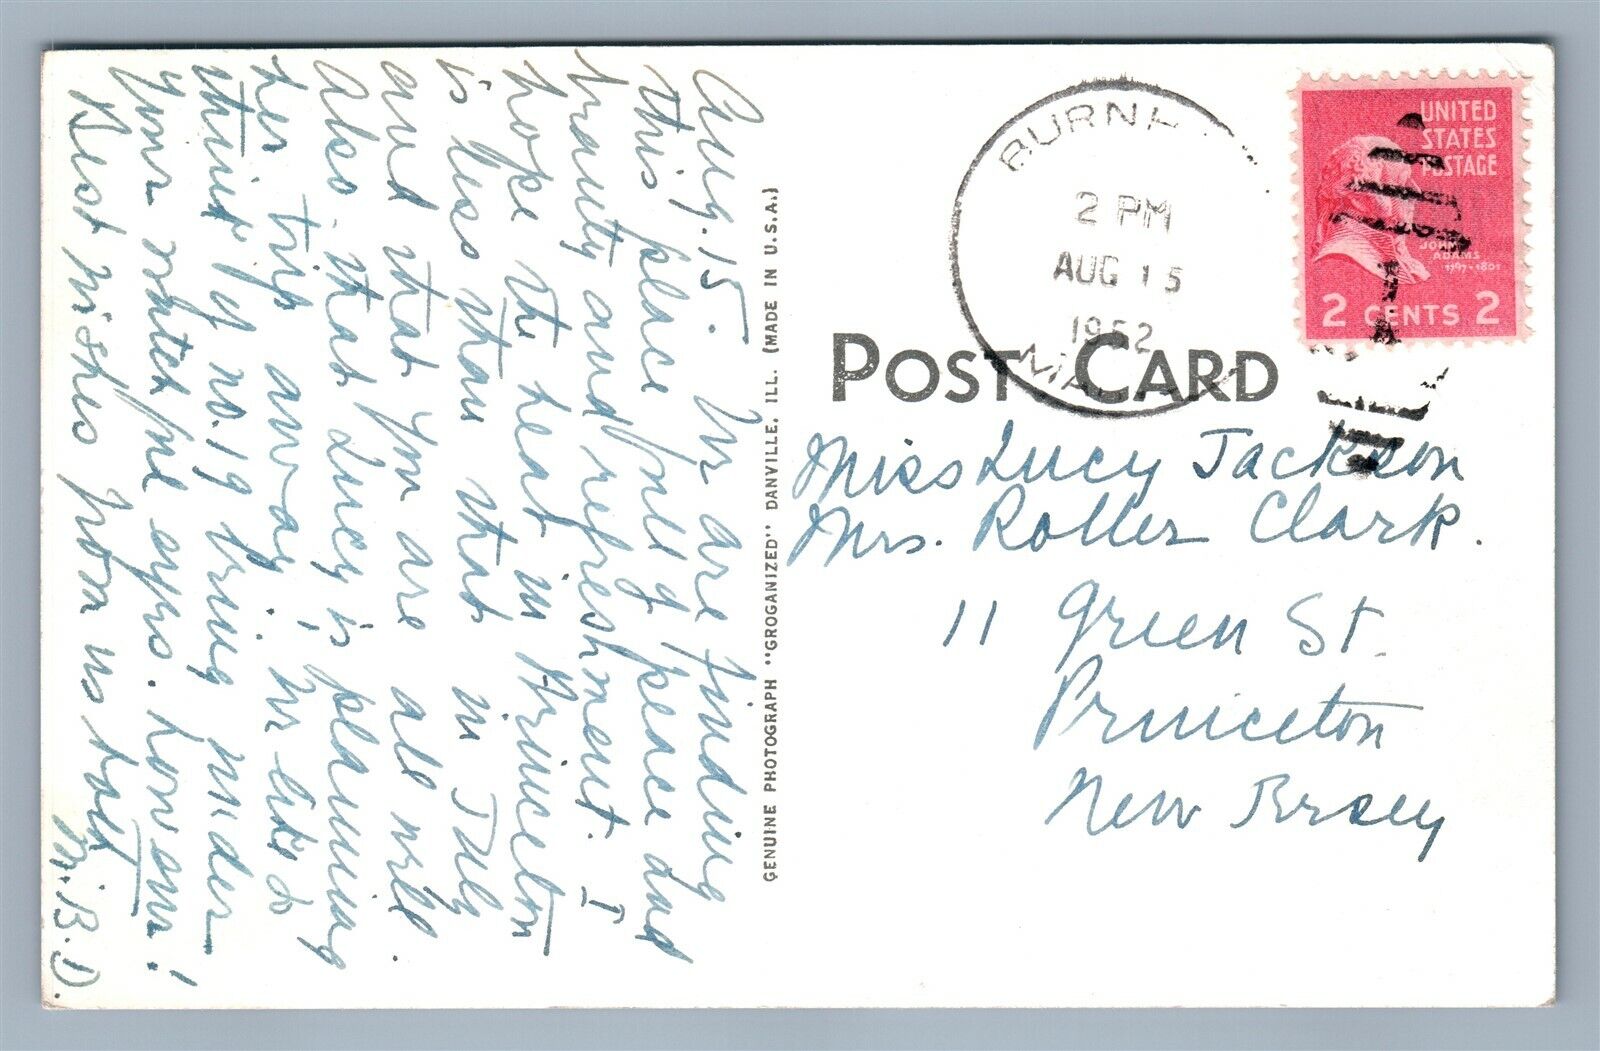 Aug. 15. We are finding
this place full of peace and
beauty and refreshment. I
hope the heat in Princeton
is less than that in July
and that you are all well.
Also, that Lucy is planning
her trip away; we like to
think of no. 19 being under
your watchful eyes. however!
Best wishes from us both
M.B.D.
GENUINE PHOTOGRAPH "GROGANIZED" DANVILLE, ILL. (MADE IN U.S.A.)
BURNH
2 PM
AUG 15
1952
UNITED
STATES
POSTAGE
JOHN
ADAMS
1797-1801
2 CENTS 2
POST CARD
Miss Lucy Jackson
Mrs. Roller Clark.
11 Green St.
Princeton
New Jersey